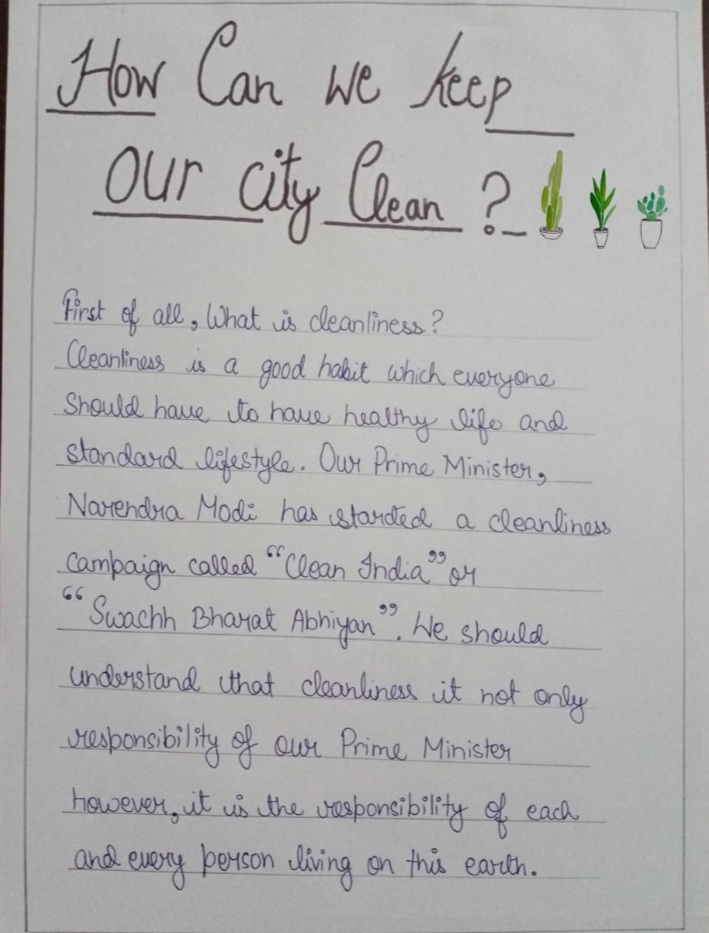 How Can we keep
our city Clean ?
First of all, What is cleanliness?
Cleanliness is a good habit which everyone
Should have to have healthy life and
standard lifestyle. Our Prime Minister,
Narendra Modi has starded a cleanliness
campaign called "Clean India" or
"Swachh Bharat Abhiyan". We should
understand that cleanliness it not only
responsibility of our Prime Minister
however, it is the responsibility of each
and every person living on this earth.